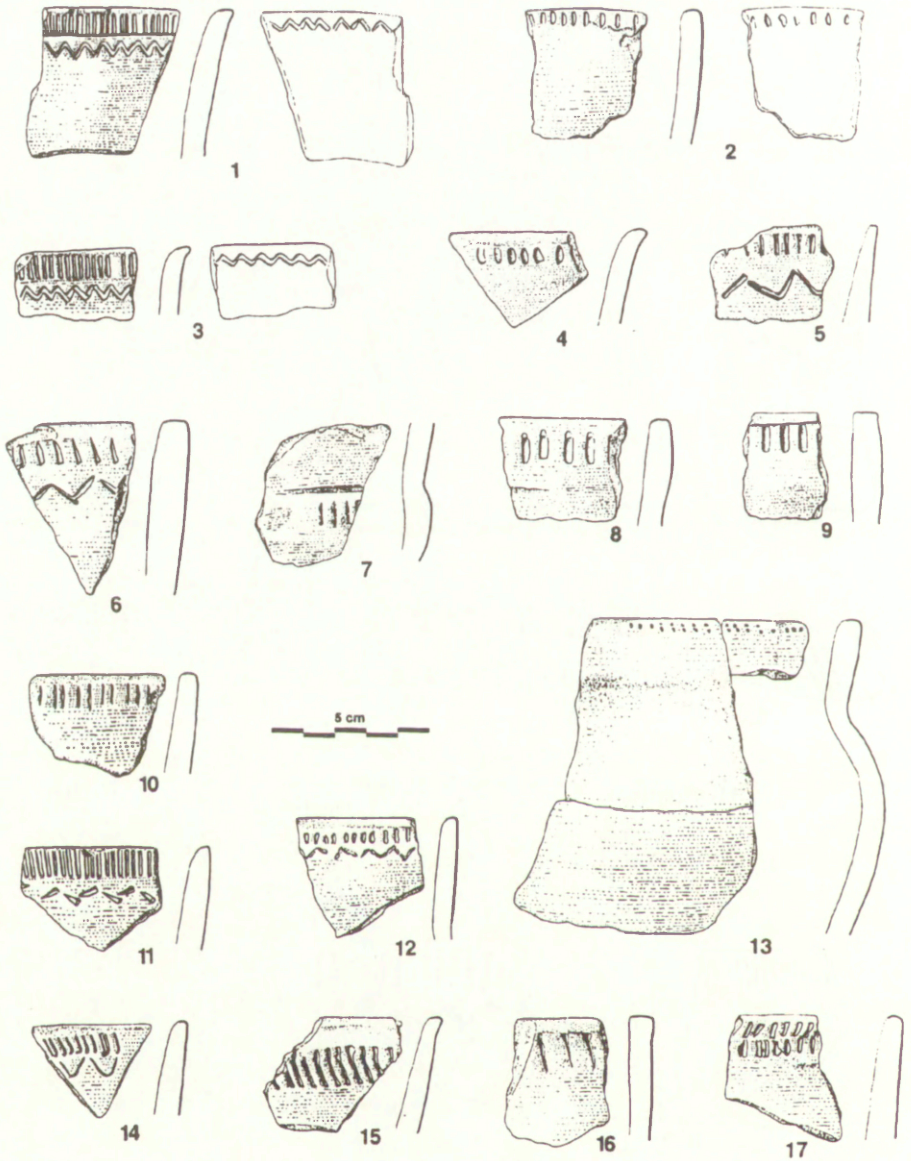 1
2
3
4
5
6
7
8
9
10
5 cm
11
12
13
14
15
16
17